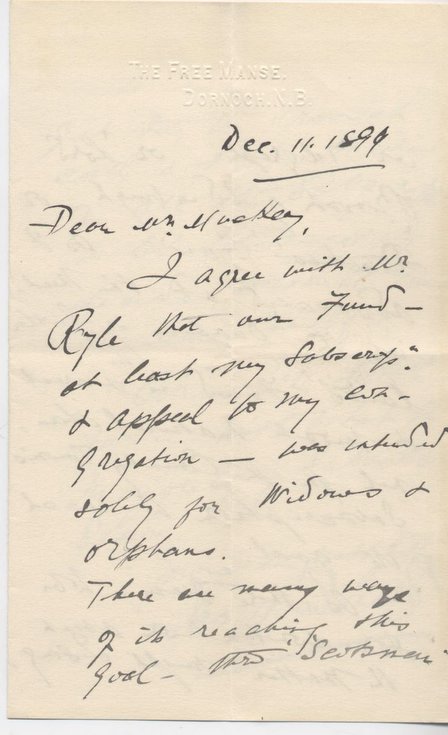 THE FREE MANSE.
DORNOCH. N.B.
Dec. 11. 1899
Dear Mr. MacKay,
I agree with Mr.
Ryle that our Fund –
at least my Subscrip.n
& appeal to my con-
gregation – was intended
solely for Widows &
orphans.
There are many ways
of its reaching this
goal – thro' "Scotsman"